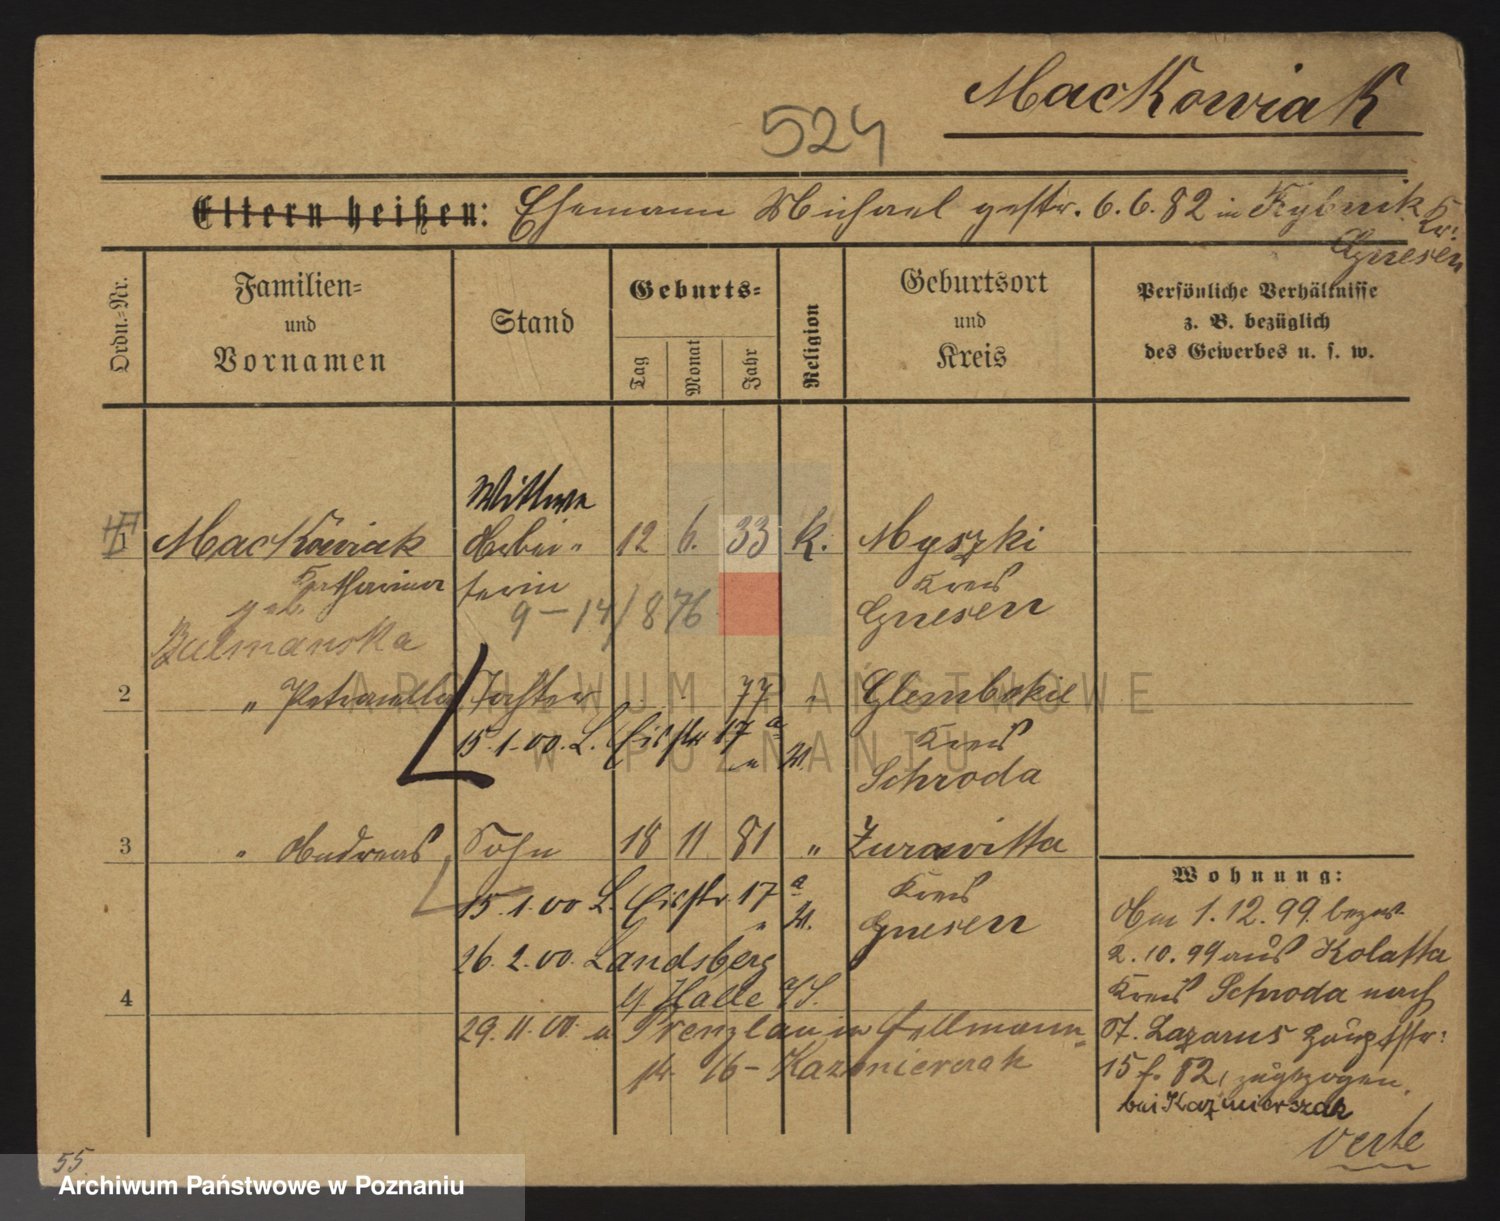 Mackowiak
524
Eltern heißen: Ehemann Michael gestr. 6.6.82 in Rybnik Kr:
Gnesen
Ordn.=Nr.
Familien=
und
Vornamen
Stand
Geburts=
Tag
Monat
Jahr
Religion
Geburtsort
und
Kreis
Persönliche Verhältnisse
z. B. bezüglich
des Gewerbes u. s. w.
Wittwe
1 Mackowiak Arbei- 12 6. 33 k. Myszki
Katharina terin Kreis
geb. 9-14/876 Gnesen
Bulmanska
2 " Petronella Tochter 77 " Glembokie
15.1.00. L. Eisstr 17 a Kreis
" W. Schroda
3 " Andreas Sohn 18 11 81 " Zurawitta
15.1.00 L. Eisstr. 17 a Kreis
" W. Gnesen
26.2.00. Landsberg
b/ Halle a/S.
4
29.11.00. a Prenzlau in Fellmann=
str. 16- Kazmierczak
Wohnung:
Am 1.12.99. bezw.
2.10.99 aus Kolatta
Kreis Schroda nach
St. Lazarus Hauptstr:
15 f. 82, zugezogen.
bei Kazmierszak
verte
55
ARCHIWUM PAŃSTWOWE
W POZNANIU
Archiwum Państwowe w Poznaniu